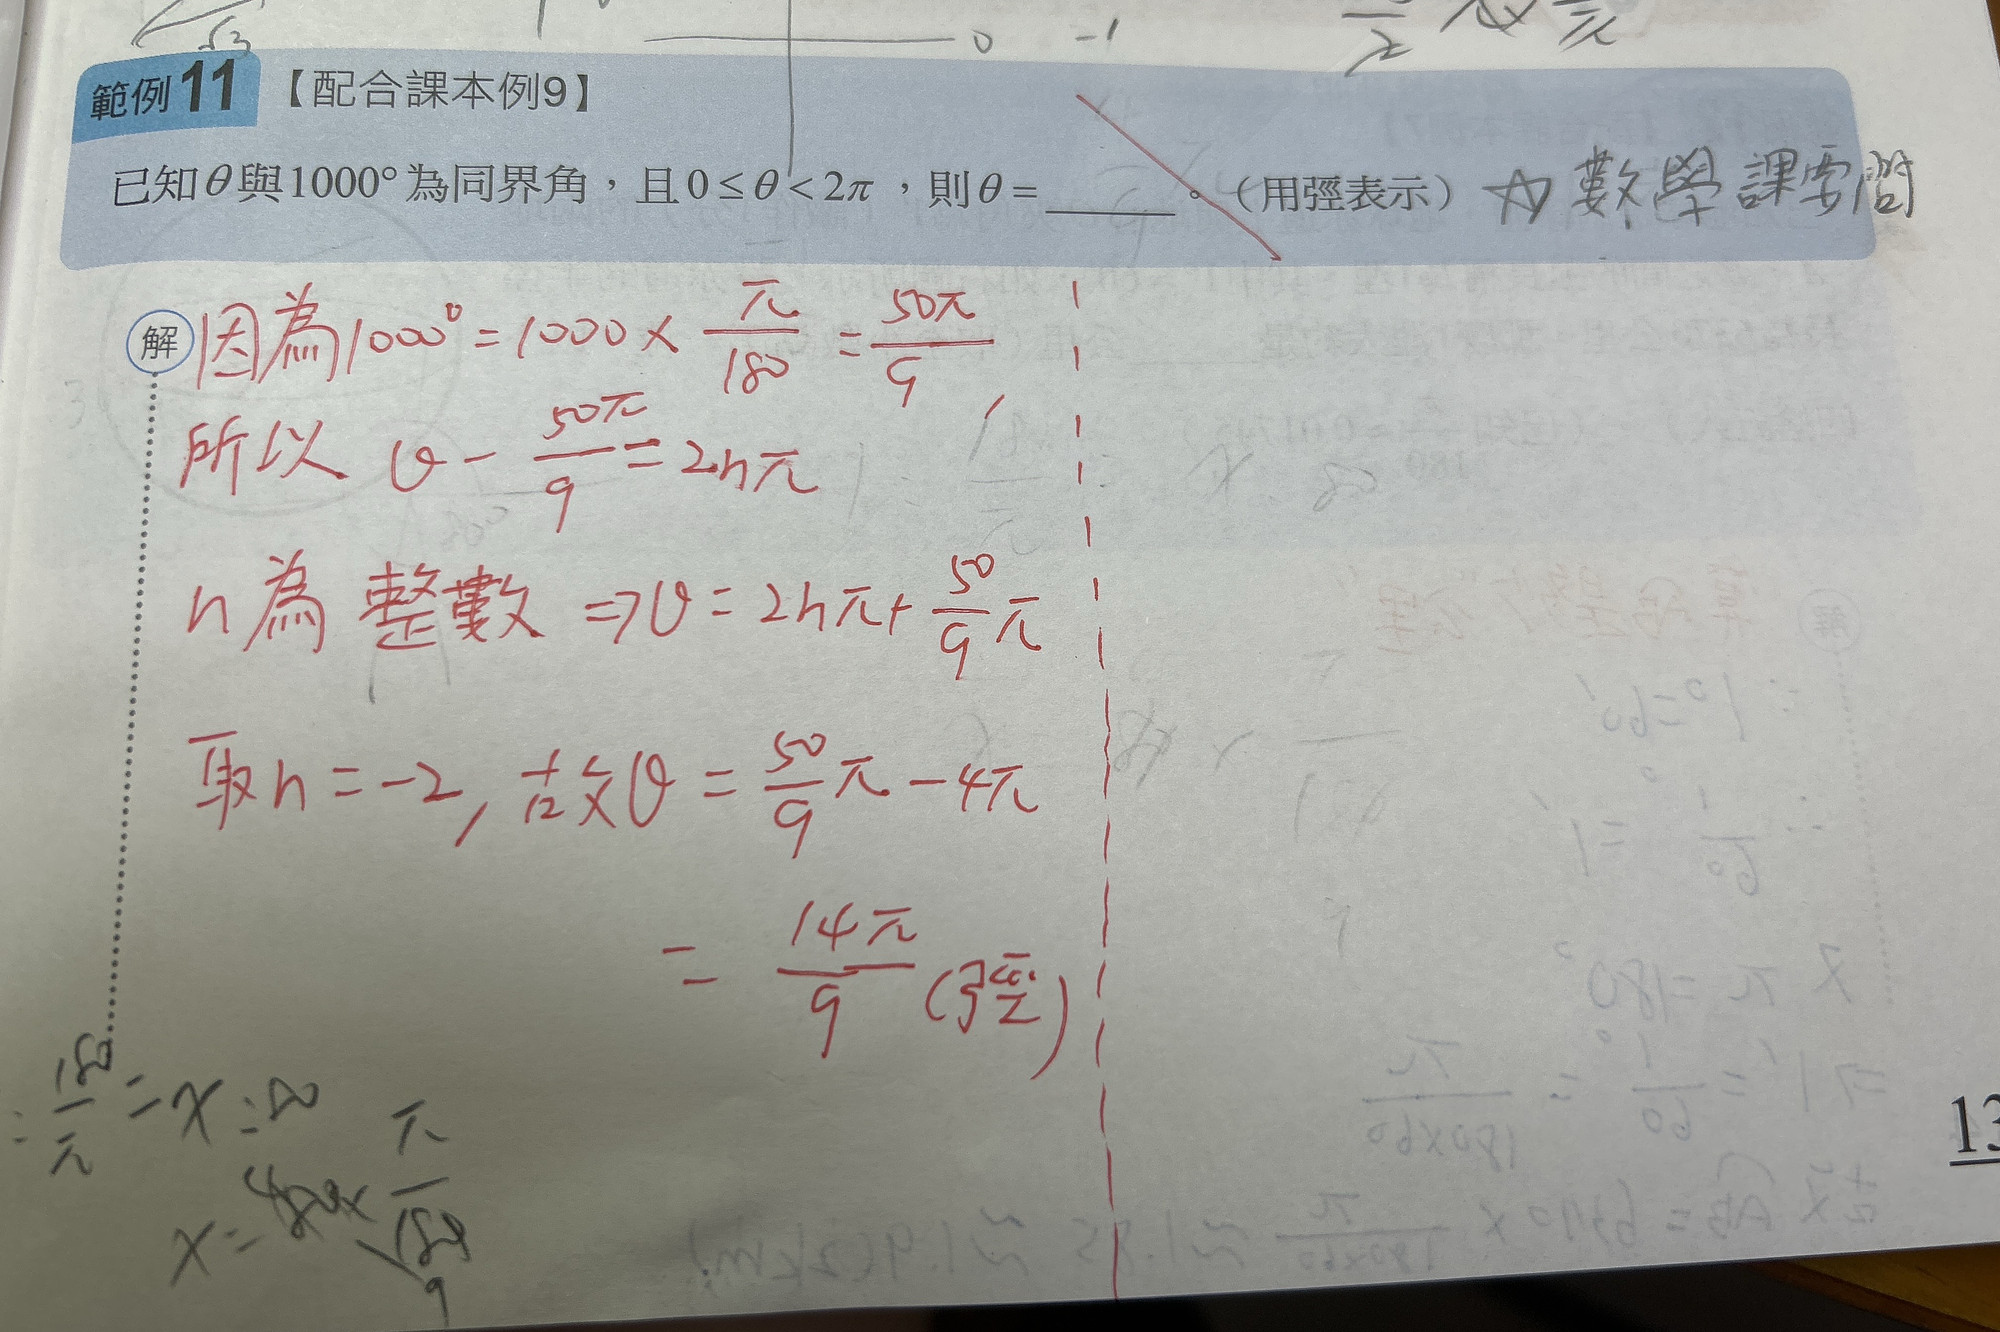 √3
0 -1
π/2
範例11【配合課本例9】
已知θ與1000°為同界角，且0≤θ<2π，則θ=______。（用弳表示）☆數學課要問
解 因為1000°=1000×π/180=50π/9，
所以 θ-50π/9=2nπ
n為整數⇒θ=2nπ+50/9π
取n=-2，故θ=50/9π-4π
=14π/9(弳)
180/π=x:80
π
x= 180
9
13